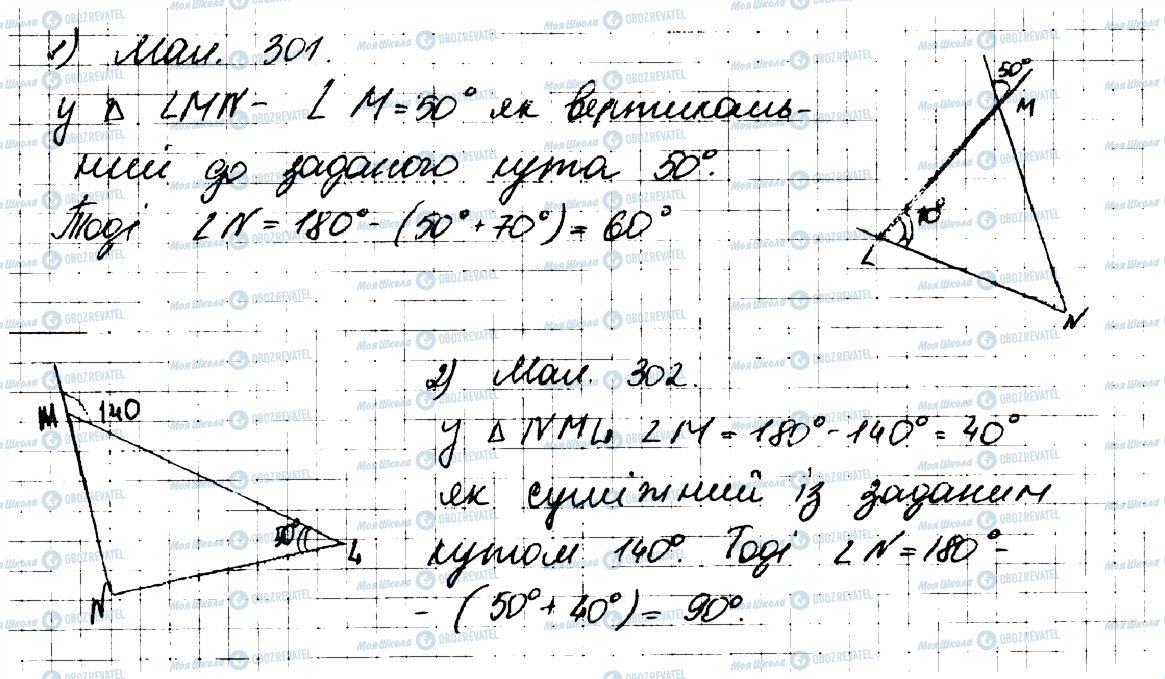 1) Мал. 301.
У Δ LMN - ∠ M = 50° як вертикаль-
ний до заданого кута 50°.
Тоді ∠N = 180° - (50° + 70°) = 60°
50°
M
70°
L
N
M 140
50°
L
N
2) Мал. 302.
У Δ NML ∠M = 180° - 140° = 40°
як суміжний із заданим
кутом 140°. Тоді ∠N = 180° -
- (50° + 40°) = 90°.
Моя Школа OBOZREVATEL